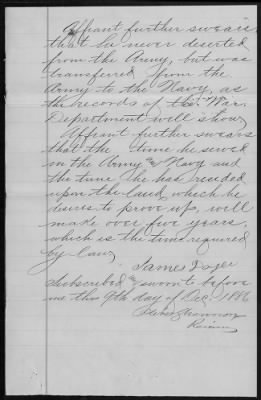 Affiant further swears,
that he never deserted
from the Army, but was
transferred from the
Army to the Navy, as
the records of the War
Department will show
Affiant further swears
that the time he served
in the Army & Navy and
the time he has resided
upon the land which he
desires to prove up, will
make over five years,
which is the time required
by law,
James
Subscribed & sworn to before
me this 9th day of Dec. 1886